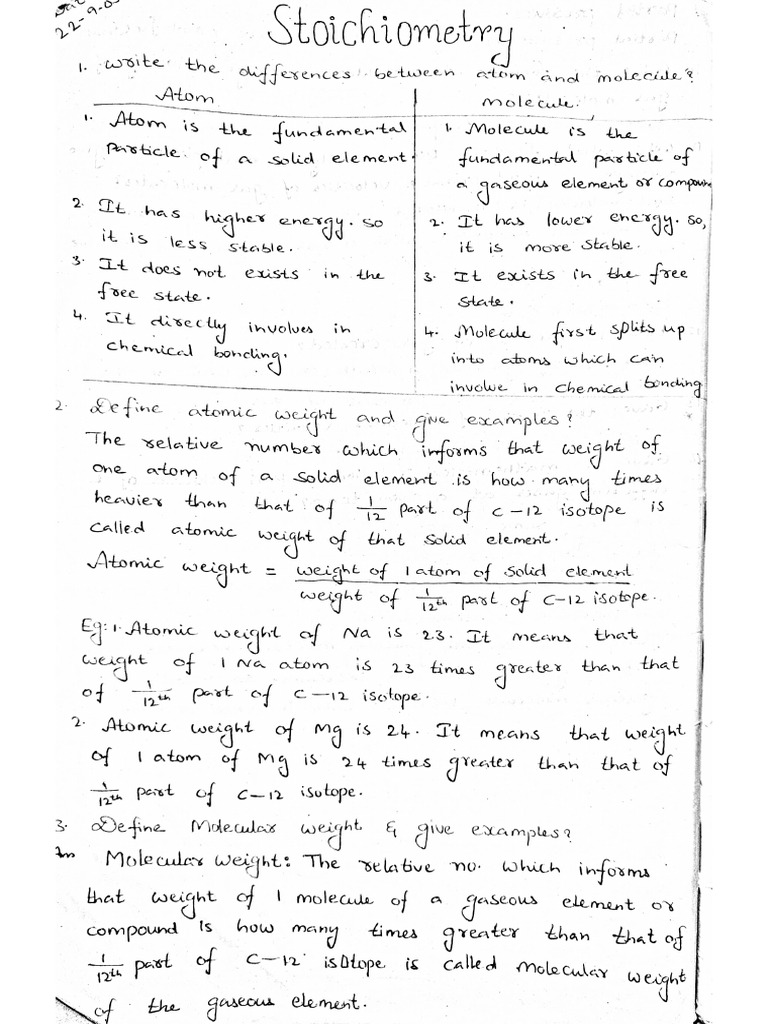 22-9-0
Stoichiometry
1. Write the differences between atom and molecule?
Atom
Molecule.
1. Atom is the fundamental
particle of a solid element.
2. It has higher energy. so
it is less stable.
3. It does not exists in the
free state.
4. It directly involves in
chemical bonding.
1. Molecule is the
fundamental particle of
a gaseous element or compoun
2. It has lower energy. so,
it is more stable.
3. It exists in the free
state.
4. Molecule first splits up
into atoms which can
involve in chemical bonding
2. Define atomic weight and give examples?
The relative number which informs that weight of
one atom of a solid element is how many times
heavier than that of 1/12 part of C-12 isotope is
called atomic weight of that solid element.
Atomic weight = weight of 1 atom of solid element
weight of 1/12th part of C-12 isotope.
Eg: 1. Atomic weight of Na is 23. It means that
weight of 1 Na atom is 23 times greater than that
of 1/12th part of C-12 isotope.
2. Atomic weight of Mg is 24. It means that weight
of 1 atom of Mg is 24 times greater than that of
1/12th part of C-12 isotope.
3. Define Molecular weight & give examples?
Molecular weight: The relative no. which informs
that weight of 1 molecule of a gaseous element or
compound is how many times greater than that of
1/12th part of C-12 isotope is called molecular weight
of the gaseous element.